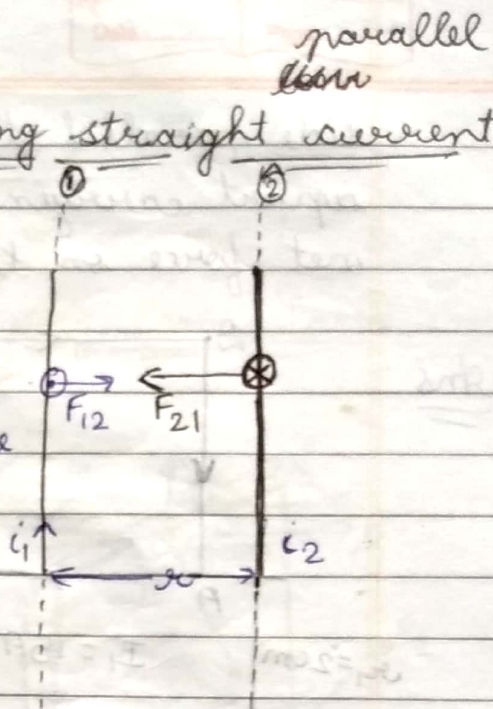 parallel
ng straight current
① ②
F12 F21
i1 i2
r